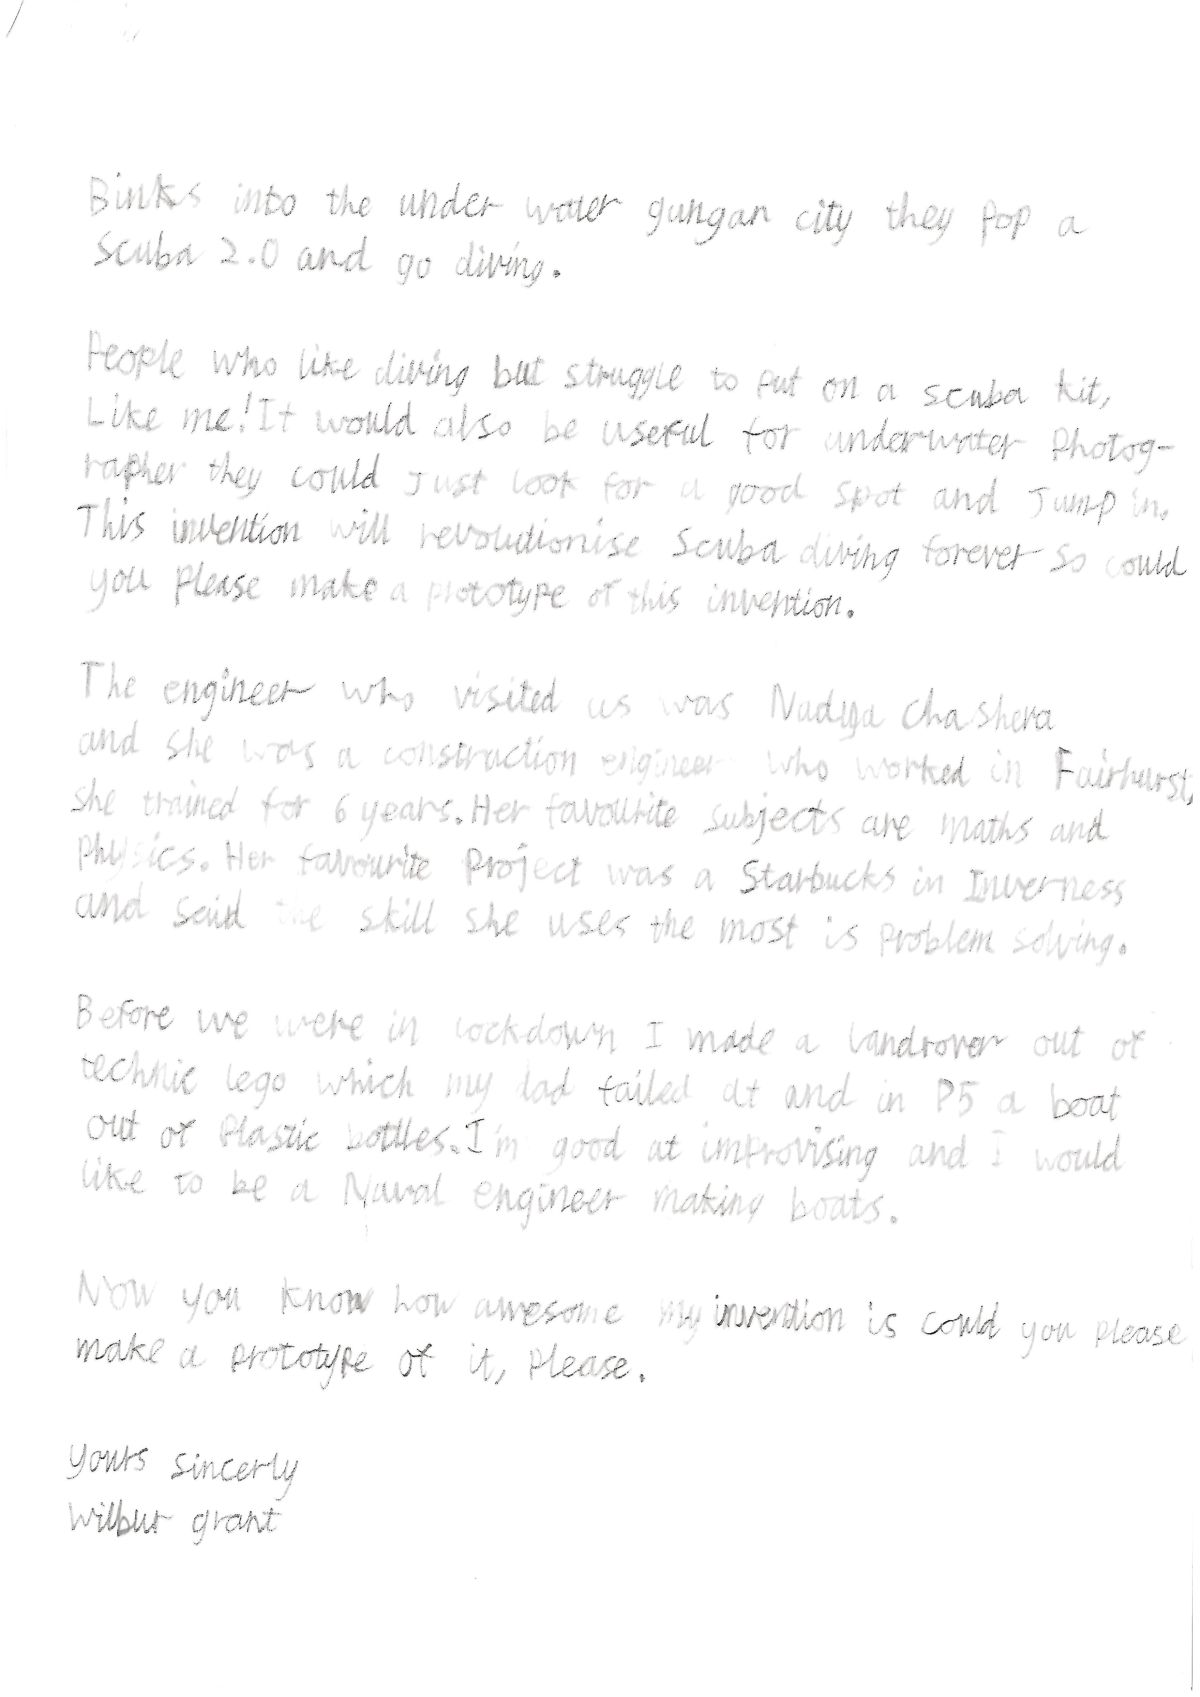 Binks into the under water gungan city they pop a
Scuba 2.0 and go diving.
People who like diving but struggle to put on a scuba kit,
Like me! It would also be useful for underwater Photog-
rapher they could Just look for a good spot and Jump in.
This invention will revolutionise Scuba diving forever so could
you please make a prototype of this invention.
The engineer who visited us was Nadya Chashera
and she was a construction engineer who worked in Fairhurst,
she trained for 6 years. Her favourite subjects are maths and
Physics. Her favourite Project was a Starbucks in Inverness
and said the skill she uses the most is problem solving.
Before we were in lockdown I made a landrover out of
technic lego which my dad failed at and in P5 a boat
out of Plastic bottles. I'm good at improvising and I would
like to be a Naval engineer making boats.
Now you know how awesome my invention is could you please
make a prototype of it, Please.
yours sincerly
Wilbur grant